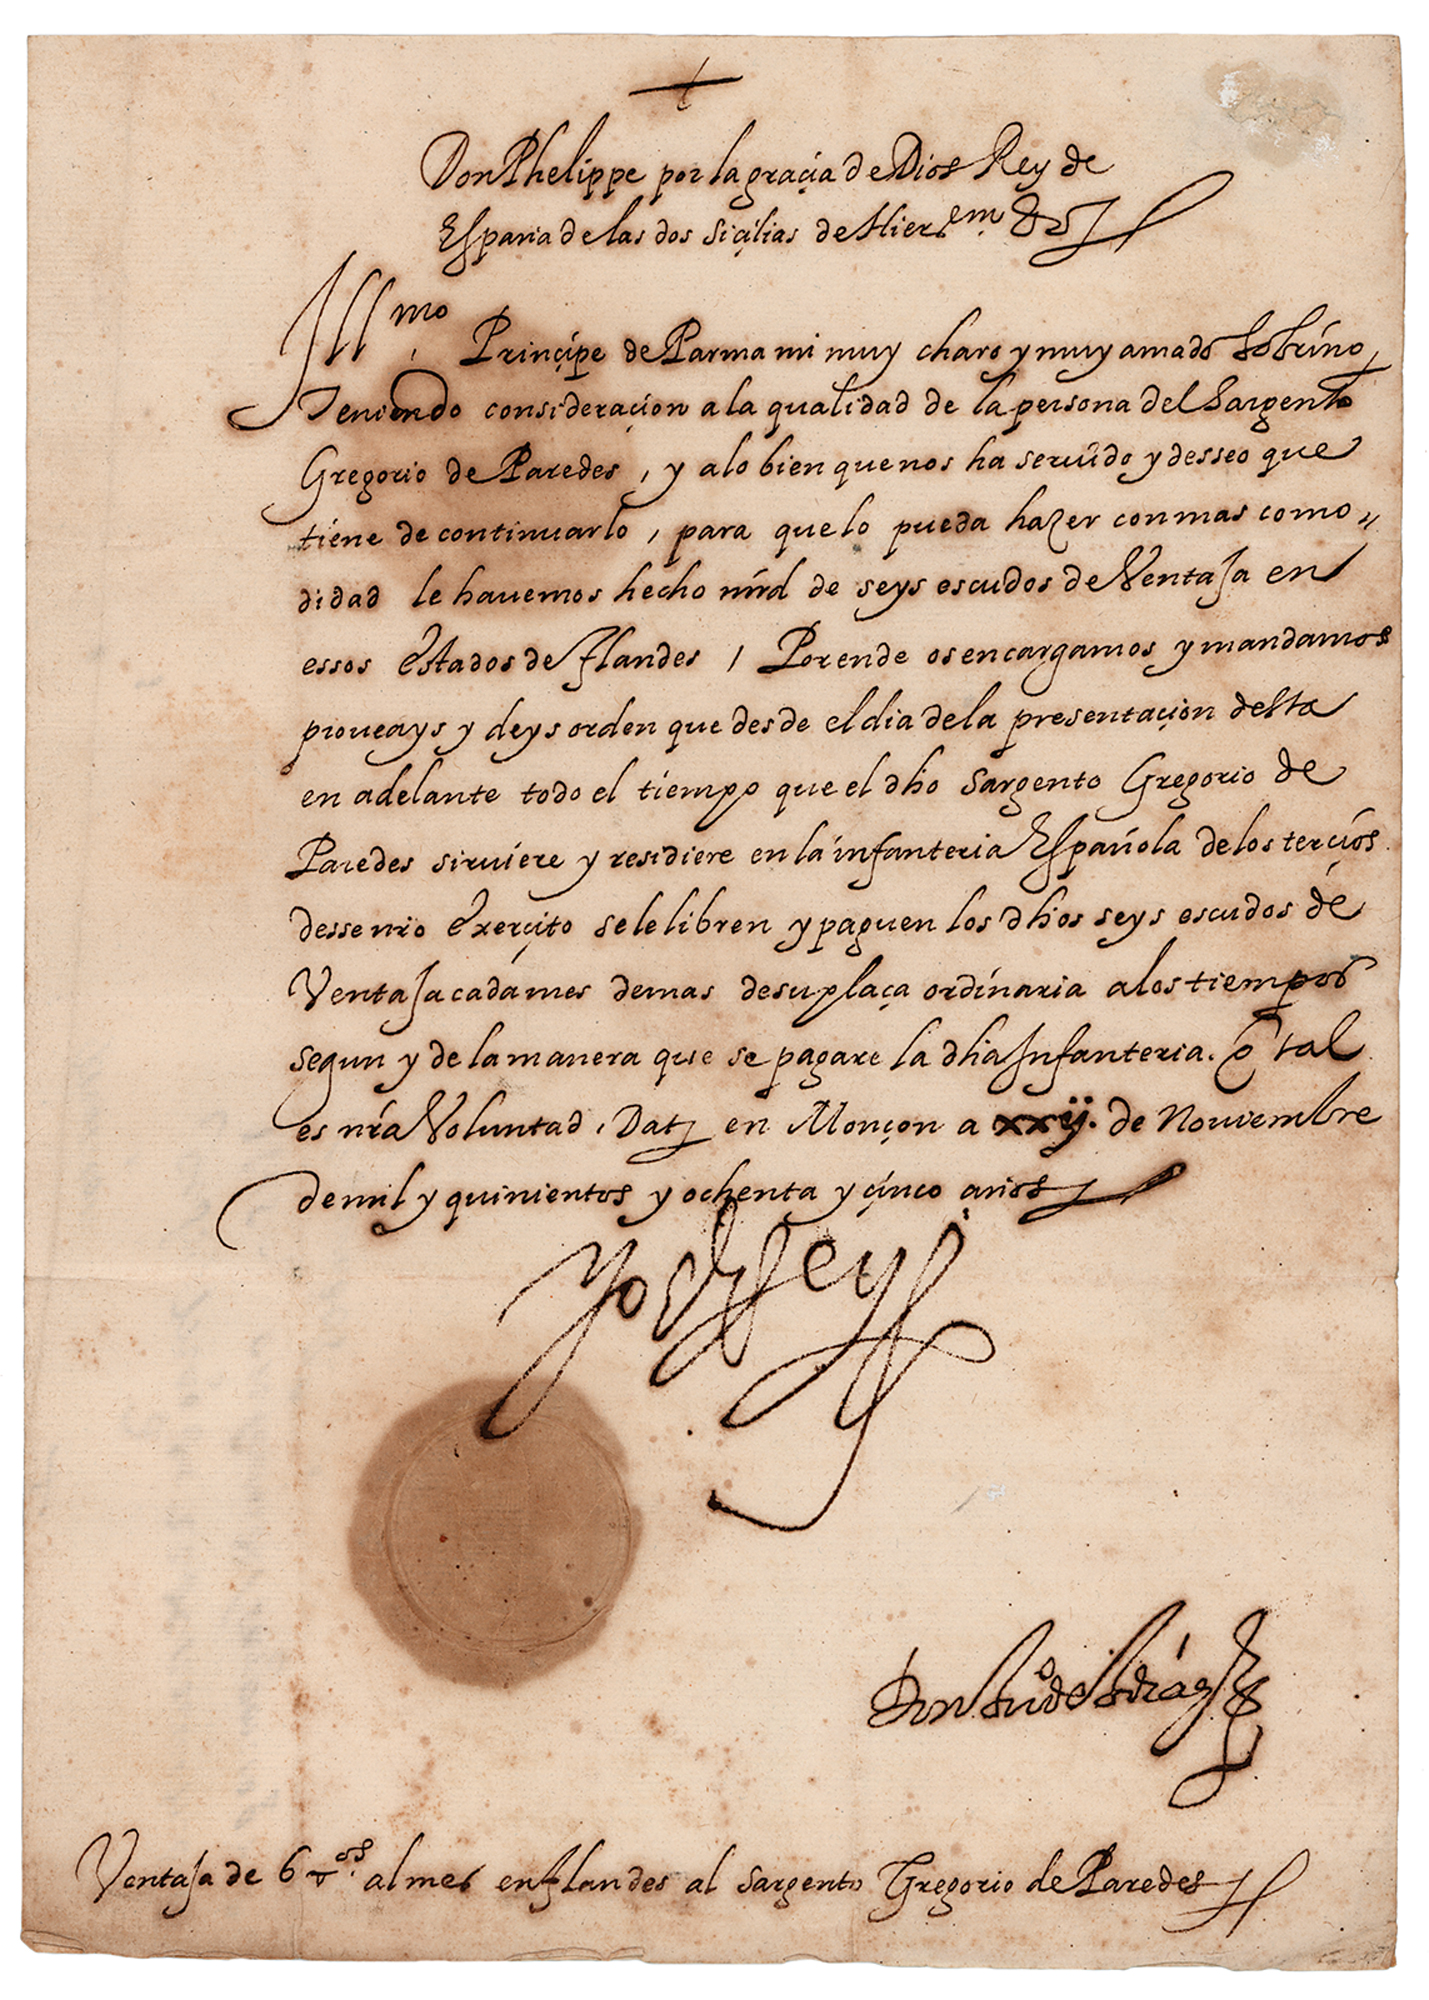 Don Phelippe por la graçia de Dios Rey de
España de las dos Siçilias de Hierlm. &c
Illmo Prinçipe de Parma mi muy charo y muy amado sobrino,
Teniendo consideraçion a la qualidad de la persona del Sargento
Gregorio de Paredes, y a lo bien que nos ha seruido y desseo que
tiene de continuarlo, para que lo pueda hazer con mas como„
didad le hauemos hecho mrd de seys escudos de Ventaja en
essos estados de flandes / Por ende os encargamos y mandamos
proueays y deys orden que desde el dia de la presentaçion desta
en adelante todo el tiempo que el dho Sargento Gregorio de
Paredes siruiere y residiere en la infanteria Española de los terçios
desse nro exerçito se le libren y paguen los dhos seys escudos de
Ventaja cada mes demas de su plaça ordinaria a los tiempos
segun y de la manera que se pagare la dha Infanteria. q tal
es nra Voluntad, Datt en Monçon a xxij. de Nouiembre
de mil y quinientos y ochenta y çinco años
Yo el Rey
Ventaja de 6 al mes en flandes al sargento Gregorio de Paredes